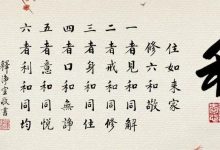 和
住如来家
修六和敬
一者見和同解
二者戒和同修
三者身和同住
四者口和無諍
五者意和同悅
六者利和同均
釋淨空敬書